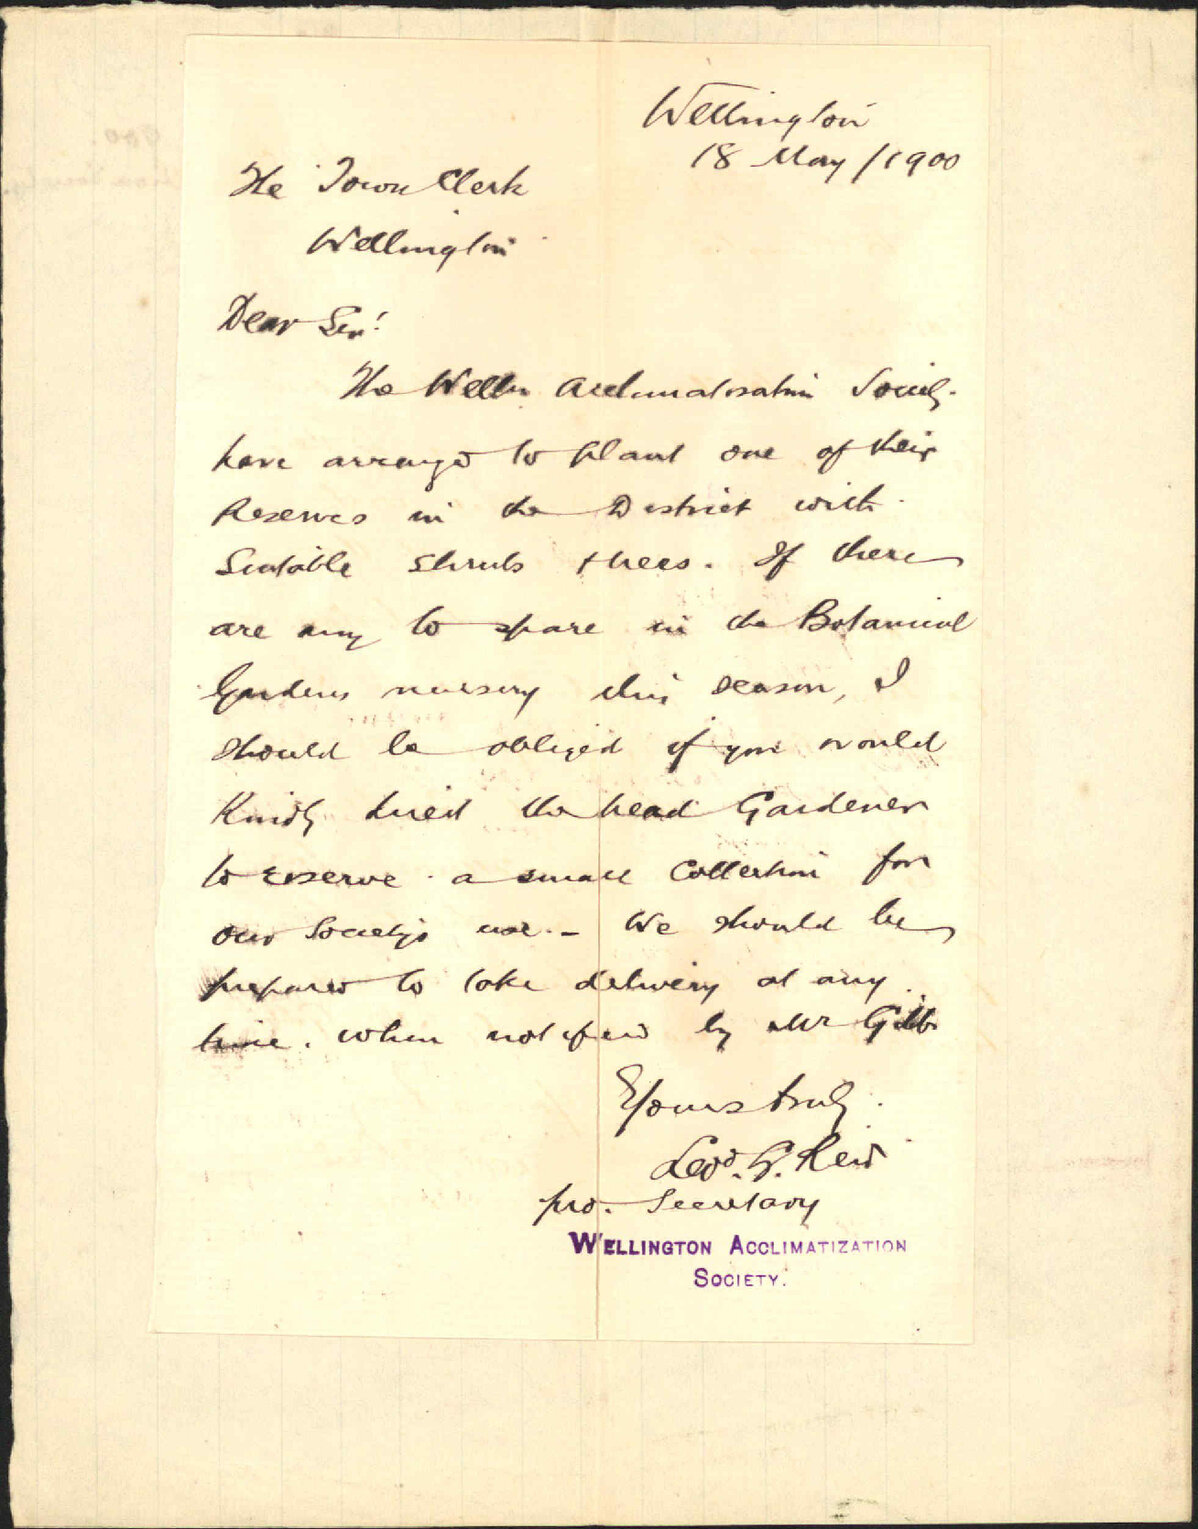 Wellington
18 May /1900
The Town Clerk
Wellington
Dear Sir!
The Welln Acclimatisation Society
have arranged to plant one of their
Reserves in the District with
Suitable Shrubs & trees. If there
are any to spare in the Botanical
Gardens nursery this season, I
should be obliged if you would
Kindly direct the head Gardener
to reserve a small Collection for
our Society's use. – We should be
prepared to take delivery at any
time. when notified by Mr Gibb
Yours truly
Leod. G. Reid
pro. Secretary
WELLINGTON ACCLIMATIZATION
SOCIETY.